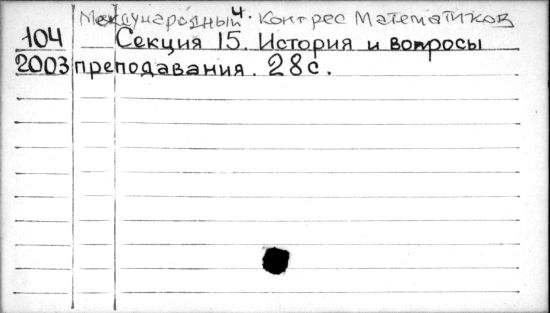 Международный ч. Контрес Математиков
104 Секция 15. История и вопросы
2003 преподавания. 28 с.